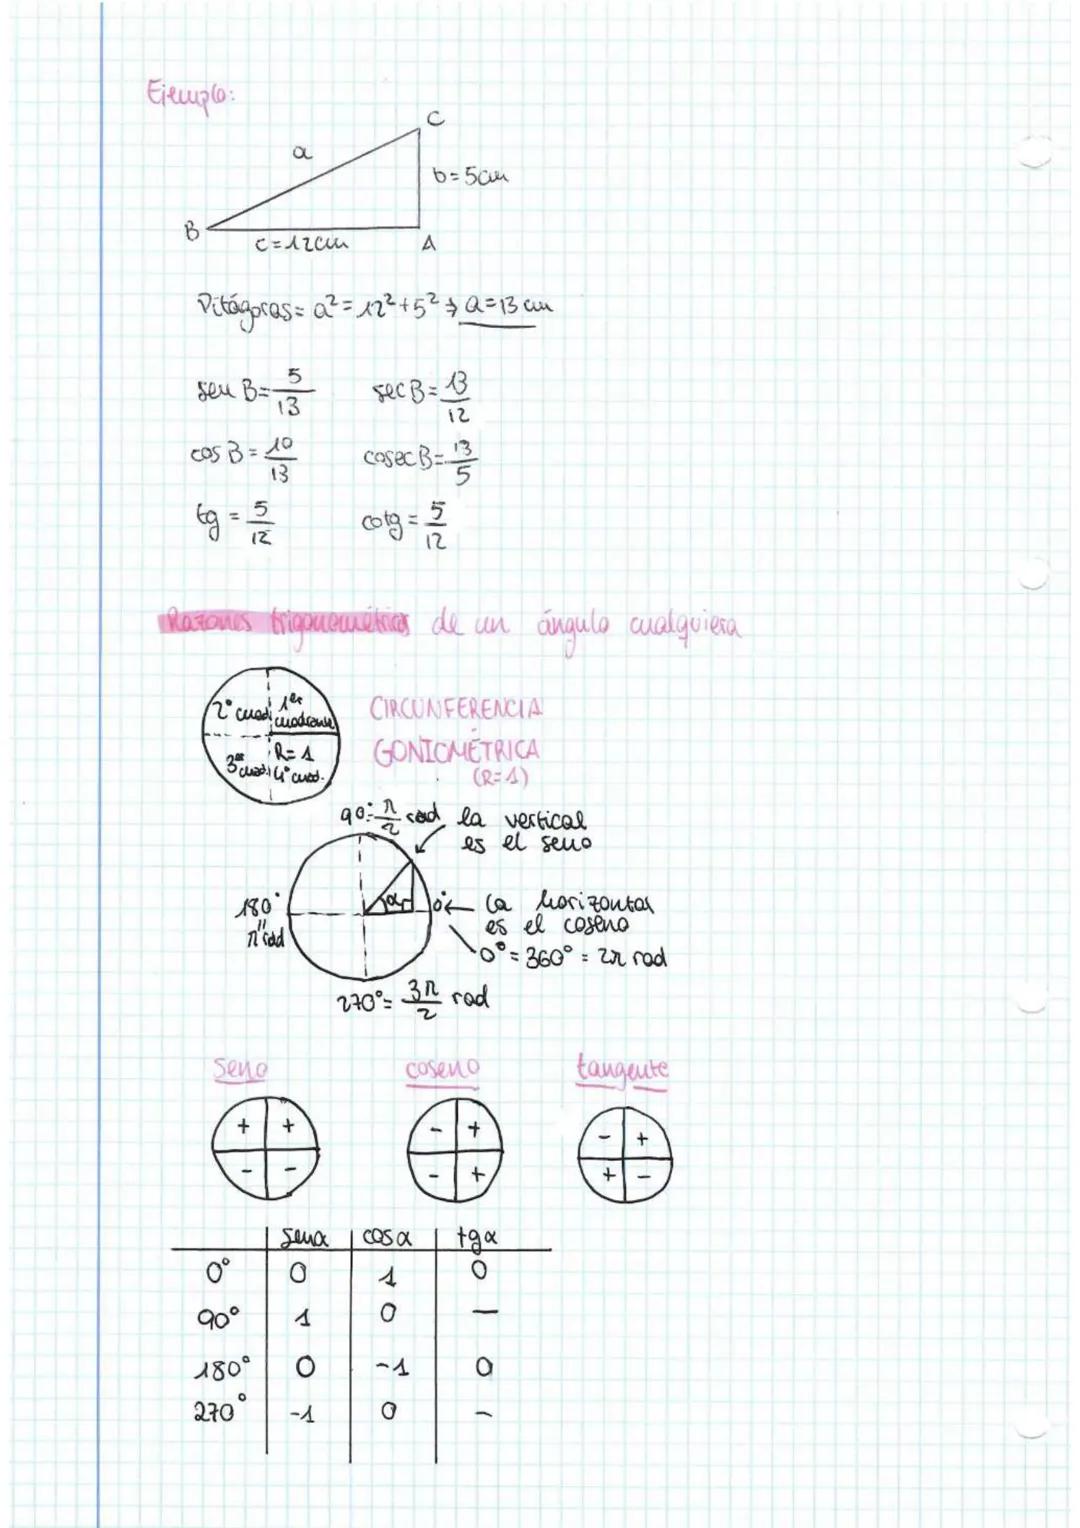 Ejemplo:
C
a
b=5cm
B
c=12cm
A
Pitágoras= a²=12²+5² → a=13 cm
sen B= 5/13 sec B= 13/12
cos B= 10/13 cosec B= 13/5
tg = 5/12 cotg = 5/12
Razones trigonométricas de un ángulo cualquiera
2º cuad. 1er cuadrante
R=1
3er cuad. 4º cuad.
CIRCUNFERENCIA
GONIOMÉTRICA
(R=1)
90º= π/2 rad la vertical
es el seno
180º α 0º ← la horizontal
es el coseno
π rad
0º = 360º = 2π rad
270º= 3π/2 rad
seno coseno tangente
+ + - + - +
- - - + + -
senα cosα tgα
0º 0 1 0
90º 1 0 —
180º 0 -1 0
270º -1 0 -